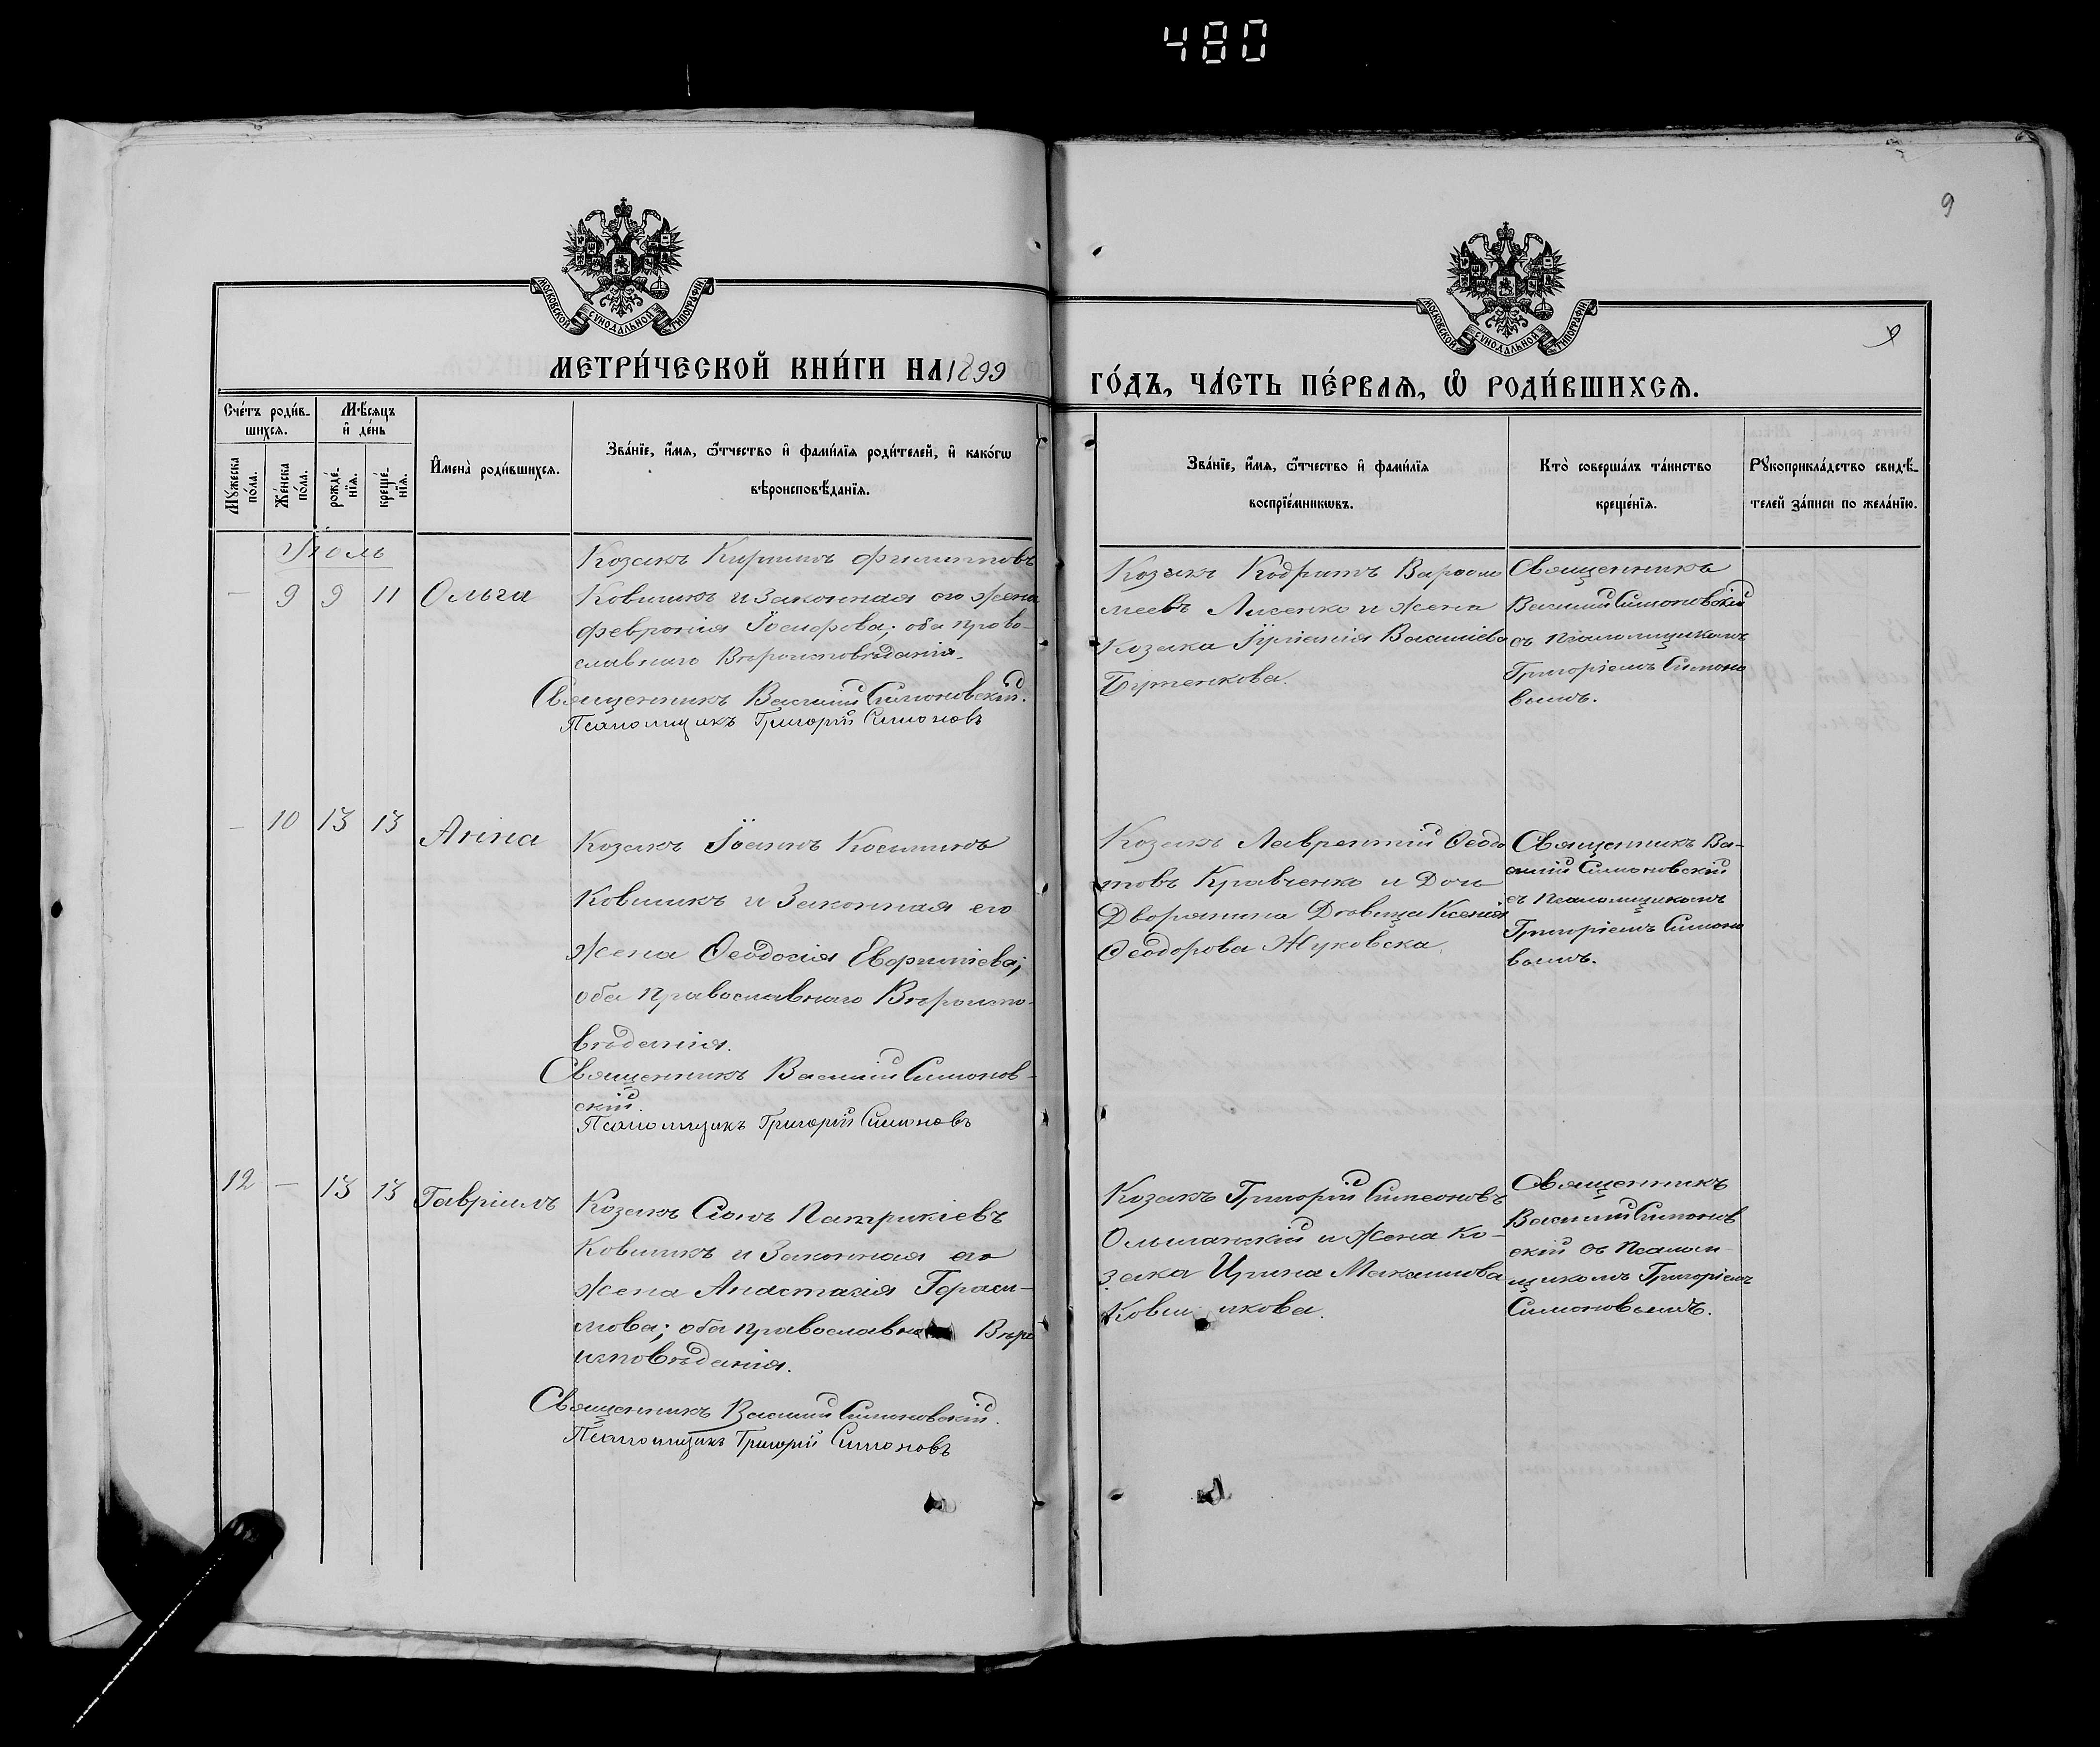 480
9
МОСКОВСКОЙ СѴНОДАЛЬНОЙ ТИПОГРАФІИ
МОСКОВСКОЙ СѴНОДАЛЬНОЙ ТИПОГРАФІИ
МЕТРИ́ЧЕСКОЙ КНИ́ГИ НА 1899
ГО́ДЪ, ЧА́СТЬ ПЕ́РВАѦ, Ѡ РОДИ́ВШИХСѦ.
Сче́тъ роди́в-
шихсѧ.
Мѣ́сѧцъ
и҆ де́нь
Мꙋ́жеска
по́ла.
Же́нска
по́ла.
рожде́-
нїѧ.
креще́-
нїѧ.
И҆мена̀ роди́вшихсѧ.
Зва́нїе, и҆́мѧ, ѻ҆́тчество и҆ фами́лїѧ роди́телей, и҆ како́гѡ
вѣроисповѣ́данїѧ.
Зва́нїе, и҆́мѧ, ѻ҆́тчество и҆ фами́лїѧ
воспрїе́мникѡвъ.
Кто̀ соверша́лъ та́инство
креще́нїѧ.
Рꙋкоприкла́дство свидѣ́-
телей за́писи по жела́нїю.
Іюль
— 9 9 11 Ольга
Козакъ Кириллъ Филипповъ
Ковшикъ и Законная его жена
Феврония Іосифова; оба право-
славнаго Вѣроисповѣданія.
Священникъ Василій Симоновскій.
Псаломщикъ Григорій Симоновъ
Козакъ Кодратъ Варфоло
меевъ Лисенко и жена
Козака Іуліанія Василіева
Бутенкова.
Священникъ
Василій Симоновскій
съ Псаломщикомъ
Григоріемъ Симоно
вымъ.
— 10 13 13 Анна
Козакъ Іоаннъ Косминъ
Ковшикъ и Законная его
жена Ѳеодосія Евфиміева;
оба православнаго Вѣроиспо-
вѣданія.
Священникъ Василій Симонов-
скій.
Псаломщикъ Григорій Симоновъ
Козакъ Лаврентій Ѳеодо
товъ Кравченко и Дочь
Дворянина Дѣвица Ксенія
Ѳеодорова Жуковска.
Священникъ Ва-
силій Симоновскій
съ Псаломщикомъ
Григоріемъ Симоно
вымъ.
12 — 13 13 Гавріилъ
Козакъ Сѵмъ Патрикіевъ
Ковшикъ и Законная его
жена Анастасія Гераси-
мова; оба православна Вѣро
исповѣданія.
Священникъ Василій Симоновскій.
Псаломщикъ Григорій Симоновъ
Козакъ Григорій Симеоновъ
Ольшанскій и жена Ко-
зака Ирина Максимова
Ковшикова.
Священникъ
Василій Симонов
скій съ Псалом-
щикомъ Григоріемъ
Симоновымъ.